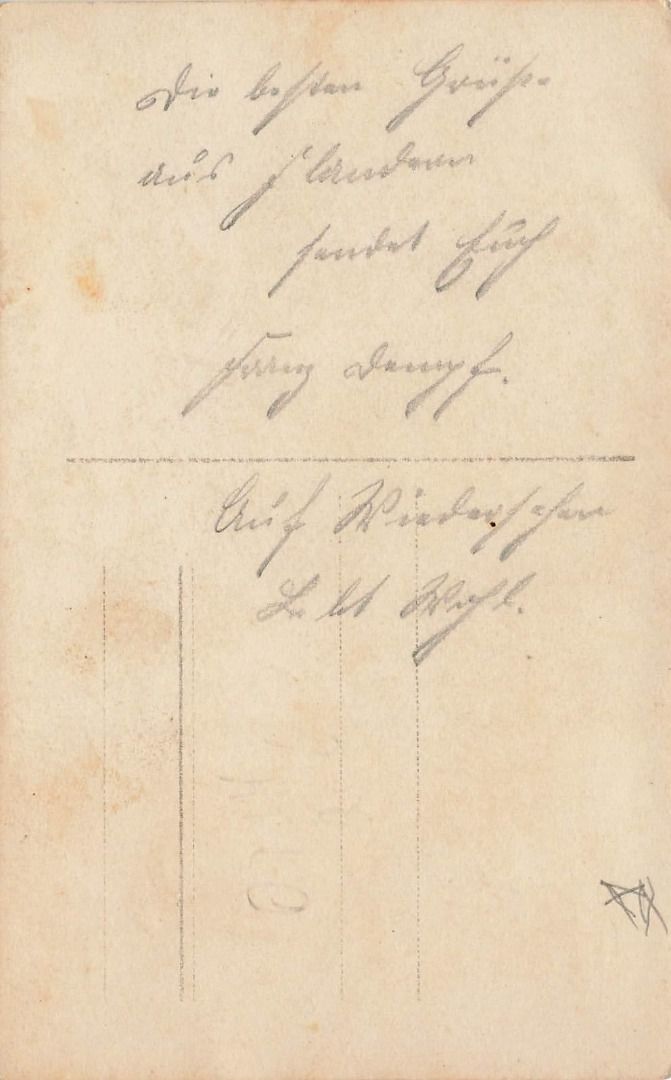 Die besten Grüße
aus Flandern
sendet Euch
Franz Dempf.
Auf Wiedersehen
Lebt Wohl.